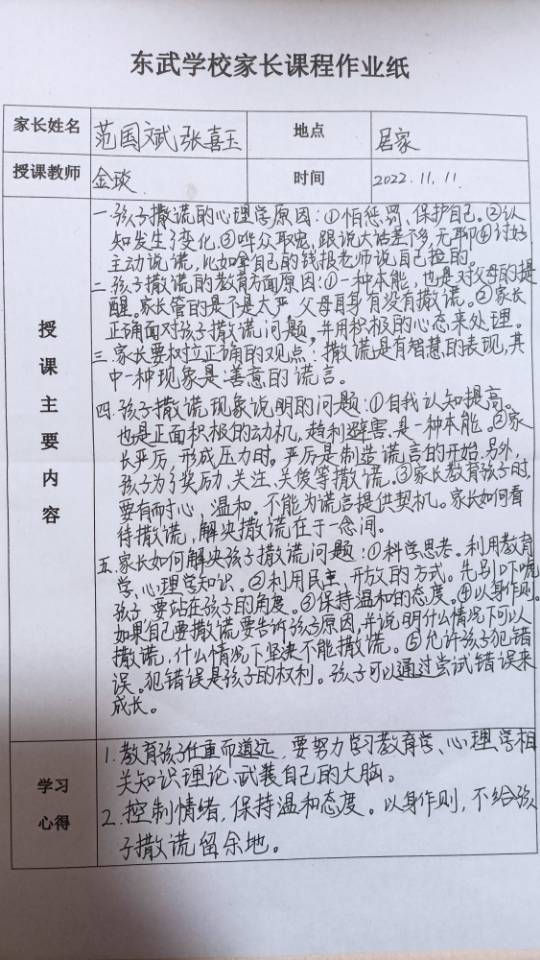 东武学校家长课程作业纸
家长姓名 范国斌,张喜玉 地点 居家
授课教师 金琰 时间 2022.11.11.
授课主要内容
一.孩子撒谎的心理学原因:①怕惩罚、保护自己。②认
知发生了变化.③哗众取宠,跟说大话差不多,无聊④讨好.
主动说谎,比如拿自己的钱报老师说自己捡的。
二.孩子撒谎的教育方面原因:①一种本能,也是对父母的提
醒。家长管的是不是太严,父母自身有没有撒谎。②家长
正确面对孩子撒谎问题,并用积极的心态来处理。
三.家长要树立正确的观点:撒谎是有智慧的表现,其
中一种现象是:善意的谎言。
四.孩子撒谎现象说明的问题:①自我认知提高。
也是正面积极的动机,趋利避害.是一种本能。②家
长严厉,形成压力时。严厉是制造谎言的开始.另外,
孩子为了奖励、关注、关爱等撒谎。③家长教育孩子时,
要有耐心,温和。不能为谎言提供契机。家长如何看
待撒谎,解决撒谎在于一念间。
五.家长如何解决孩子撒谎问题:①科学思考。利用教育
学、心理学知识。②利用民主、开放的方式。先别吓唬
孩子,要站在孩子的角度。③保持温和的态度。④以身作则。
如果自己要撒谎要告诉孩子原因,并说明什么情况下可以
撒谎,什么情况下坚决不能撒谎。⑤允许孩子犯错
误。犯错误是孩子的权利。孩子可以通过尝试错误来
成长。
学习心得
1.教育孩子任重而道远,要努力学习教育学、心理学相
关知识理论.武装自己的大脑。
2.控制情绪,保持温和态度。以身作则,不给孩
子撒谎留余地。